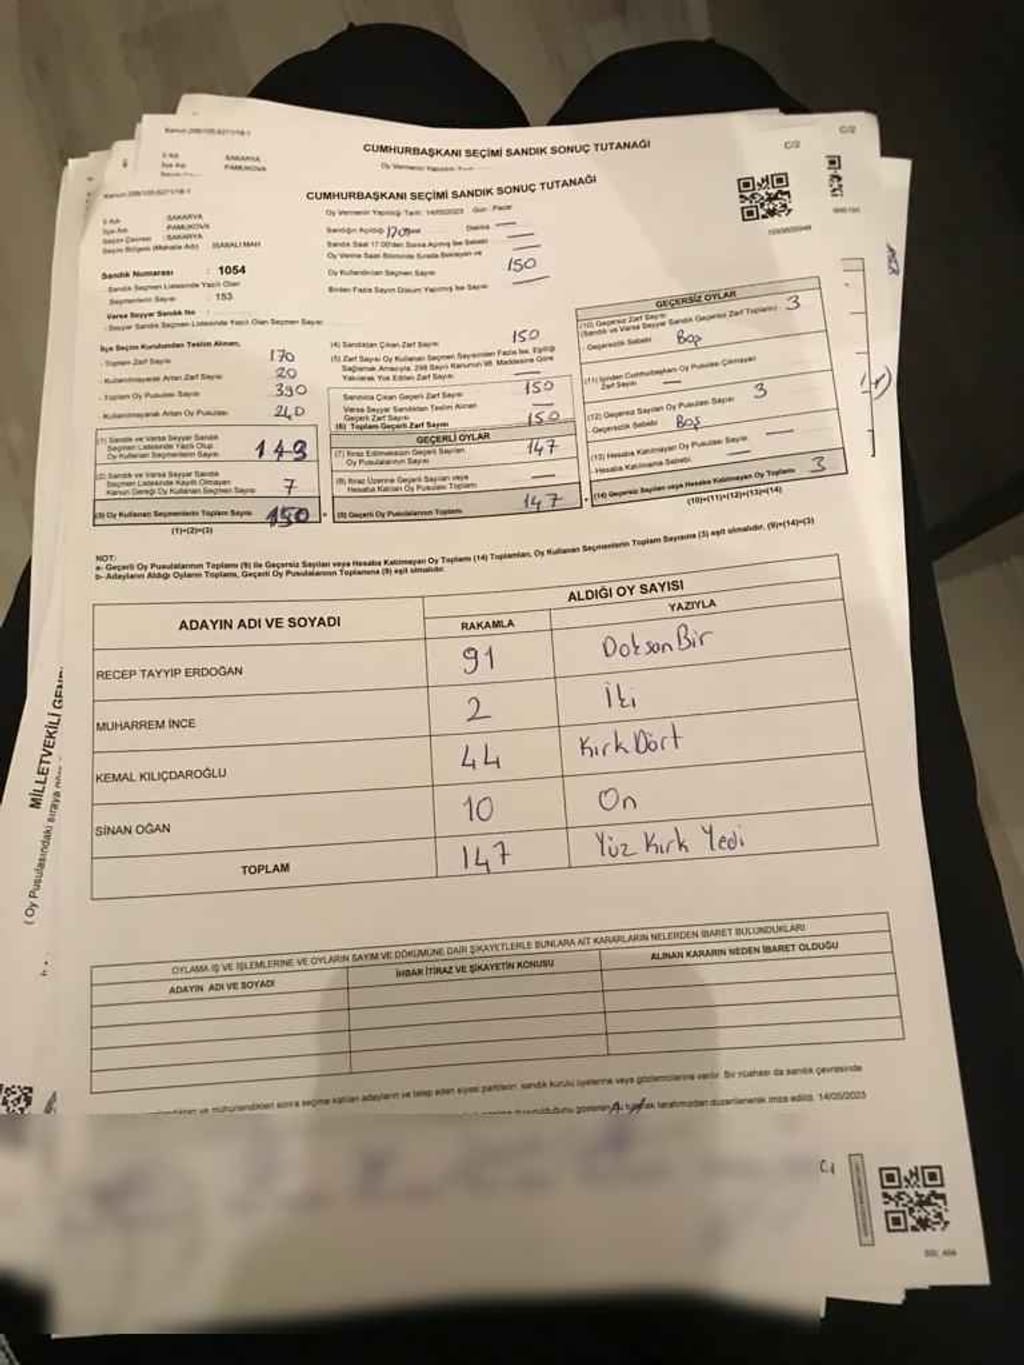 CUMHURBAŞKANI SEÇİMİ SANDIK SONUÇ TUTANAĞI
C/2
İli Adı SAKARYA
İlçe Adı PAMUKOVA
C/2
CUMHURBAŞKANI SEÇİMİ SANDIK SONUÇ TUTANAĞI
İli Adı : SAKARYA
İlçe Adı : PAMUKOVA
Seçim Çevresi : SAKARYA
Seçim Bölgesi (Mahalle Adı)
Sandık Numarası : 1054
Sandık Seçmen Listesinde Yazılı Olan
Seçmenlerin Sayısı : 153
Varsa Seyyar Sandık No :
Sandık Seçmen Listesinde Yazılı Olan Seçmen Sayısı:
Oy Vermenin Yapıldığı Tarih: 14/05/2023 Gün: Pazar
Sandığın Açıldığı
Oy Kullandırılan Seçmen Sayısı 150
Birden Fazla Sayım Döküm Yapılmış İse Sayısı
İlçe Seçim Kurulundan Teslim Alınan,
- Toplam Zarf Sayısı 170
- Kullanılmayarak Artan Zarf Sayısı 20
- Toplam Oy Pusulası Sayısı 390
- Kullanılmayarak Artan Oy Pusulası 240
(1) Sandık ve Varsa Seyyar Sandık
Seçmen Listesinde Yazılı Olup
Oy Kullanan Seçmenlerin Sayısı 143
(2) Sandık ve Varsa Seyyar Sandık
Seçmen Listesinde Kayıtlı Olmayan
Kanun Gereği Oy Kullanan Seçmen Sayısı 7
(3) Oy Kullanan Seçmenlerin Toplam Sayısı 150
(1)+(2)=(3)
(4) Sandıktan Çıkan Zarf Sayısı 150
(5) Zarf Sayısı Oy Kullanan Seçmen Sayısından Fazla İse, Eşitliği
Sağlamak Amacıyla, 298 Sayılı Kanunun 98. Maddesine Göre
Yakılarak Yok Edilen Zarf Sayısı
Sandıkta Çıkan Geçerli Zarf Sayısı 150
Varsa Seyyar Sandıktan Teslim Alınan
Geçerli Zarf Sayısı
(6) Toplam Geçerli Zarf Sayısı 150
GEÇERLİ OYLAR
(7) İtiraz Edilmeksizin Geçerli Sayılan
Oy Pusulalarının Sayısı 147
(8) İtiraz Üzerine Geçerli Sayılan veya
Hesaba Katılan Oy Pusulası Toplamı
(9) Geçerli Oy Pusulalarının Toplamı 147
GEÇERSİZ OYLAR
(10) Geçersiz Zarf Sayısı 3
(Sandık ve Varsa Seyyar Sandık Geçersiz Zarf Toplamı)
-Geçersizlik Sebebi Boş
(11) İçinden Cumhurbaşkanı Oy Pusulası Çıkmayan
Zarf Sayısı
(12) Geçersiz Sayılan Oy Pusulası Sayısı 3
-Geçersizlik Sebebi Boş
(13) Hesaba Katılmayan Oy Pusulası Sayısı
-Hesaba Katılmama Sebebi
(14) Geçersiz Sayılan veya Hesaba Katılmayan Oy Toplamı 3
(10)+(11)+(12)+(13)=(14)
NOT:
a- Geçerli Oy Pusulalarının Toplamı (9) ile Geçersiz Sayılan veya Hesaba Katılmayan Oy Toplamı (14) Toplamları, Oy Kullanan Seçmenlerin Toplam Sayısına (3) eşit olmalıdır. (9)+(14)=(3)
b- Adayların Aldığı Oyların Toplamı, Geçerli Oy Pusulalarının Toplamına (9) eşit olmalıdır.
ADAYIN ADI VE SOYADI
ALDIĞI OY SAYISI
RAKAMLA YAZIYLA
RECEP TAYYİP ERDOĞAN 91 Doksan Bir
MUHARREM İNCE 2 İki
KEMAL KILIÇDAROĞLU 44 Kırk Dört
SİNAN OĞAN 10 On
TOPLAM 147 Yüz Kırk Yedi
OYLAMA İŞ VE İŞLEMLERİNE VE OYLARIN SAYIM VE DÖKÜMÜNE DAİR ŞİKAYETLERLE BUNLARA AİT KARARLARIN NELERDEN İBARET BULUNDUKLARI
ADAYIN ADI VE SOYADI
İHBAR İTİRAZ VE ŞİKAYETİN KONUSU
ALINAN KARARIN NEDEN İBARET OLDUĞU
ve mühürlendikten sonra seçime katılan adayların ve talep eden siyasi partilerin sandık kurulu üyelerine veya gözlemcilerine verilir. Bir nüshası da sandık çevresinde
tarafımızdan düzenlenerek imza edildi. 14/05/2023
MİLLETVEKİLİ
( Oy Pusulasındaki sıraya